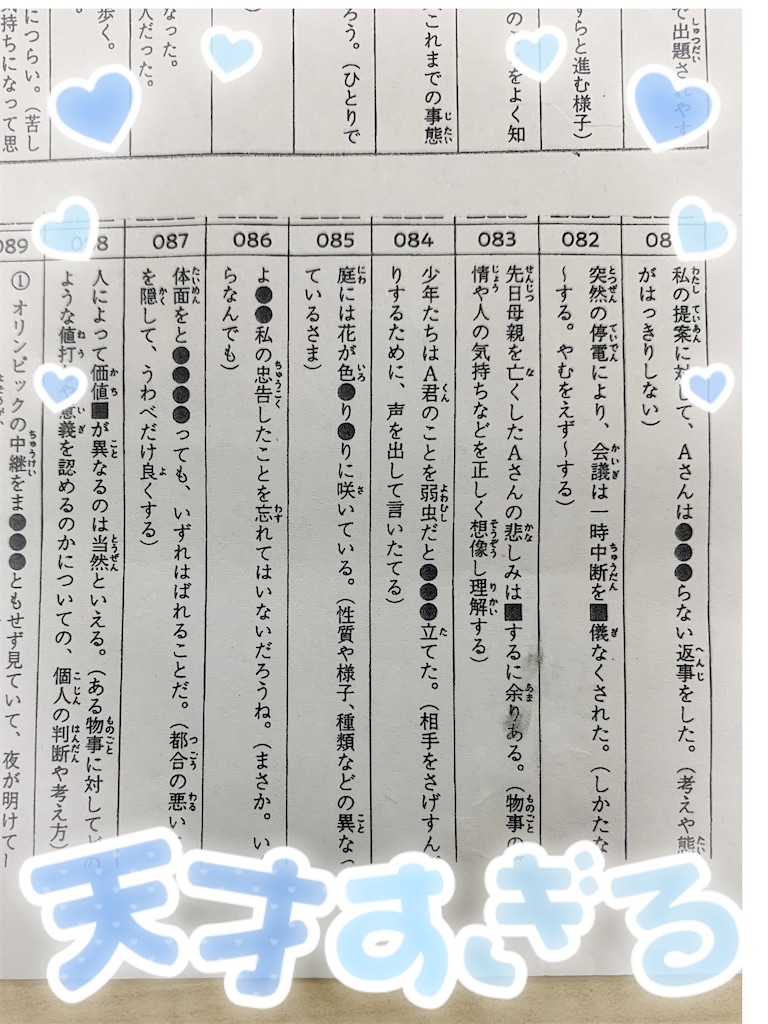 で出題されやす
すらと進む様子)
をよく知
これまでの事態
ろう。(ひとりで
なった。
人だった。
歩く。
につらい。(苦し
持ちになって思
私の提案に対して、Aさんは●●●らない返事をした。(考えや態
がはっきりしない)
082
突然の停電により、会議は一時中断を■儀なくされた。(しかたな
~する。やむをえず~する)
083
先日母親を亡くしたAさんの悲しみは■するに余りある。(物事の
情や人の気持ちなどを正しく想像し理解する)
084
少年たちはA君のことを弱虫だと●●●立てた。(相手をさげすん
りするために、声を出して言いたてる)
085
庭には花が色●り●りに咲いている。(性質や様子、種類などの異な
ているさま)
086
よ●●私の忠告したことを忘れてはいないだろうね。(まさか。い
らなんでも)
087
体面をと●●●●っても、いずれはばれることだ。(都合の悪い
を隠して、うわべだけ良くする)
人によって価値■が異なるのは当然といえる。(ある物事に対してどの
ような値打ちや意義を認めるのかについての、個人の判断や考え方)
089
① オリンピックの中継をま●●●ともせず見ていて、夜が明けてし
天才すぎる